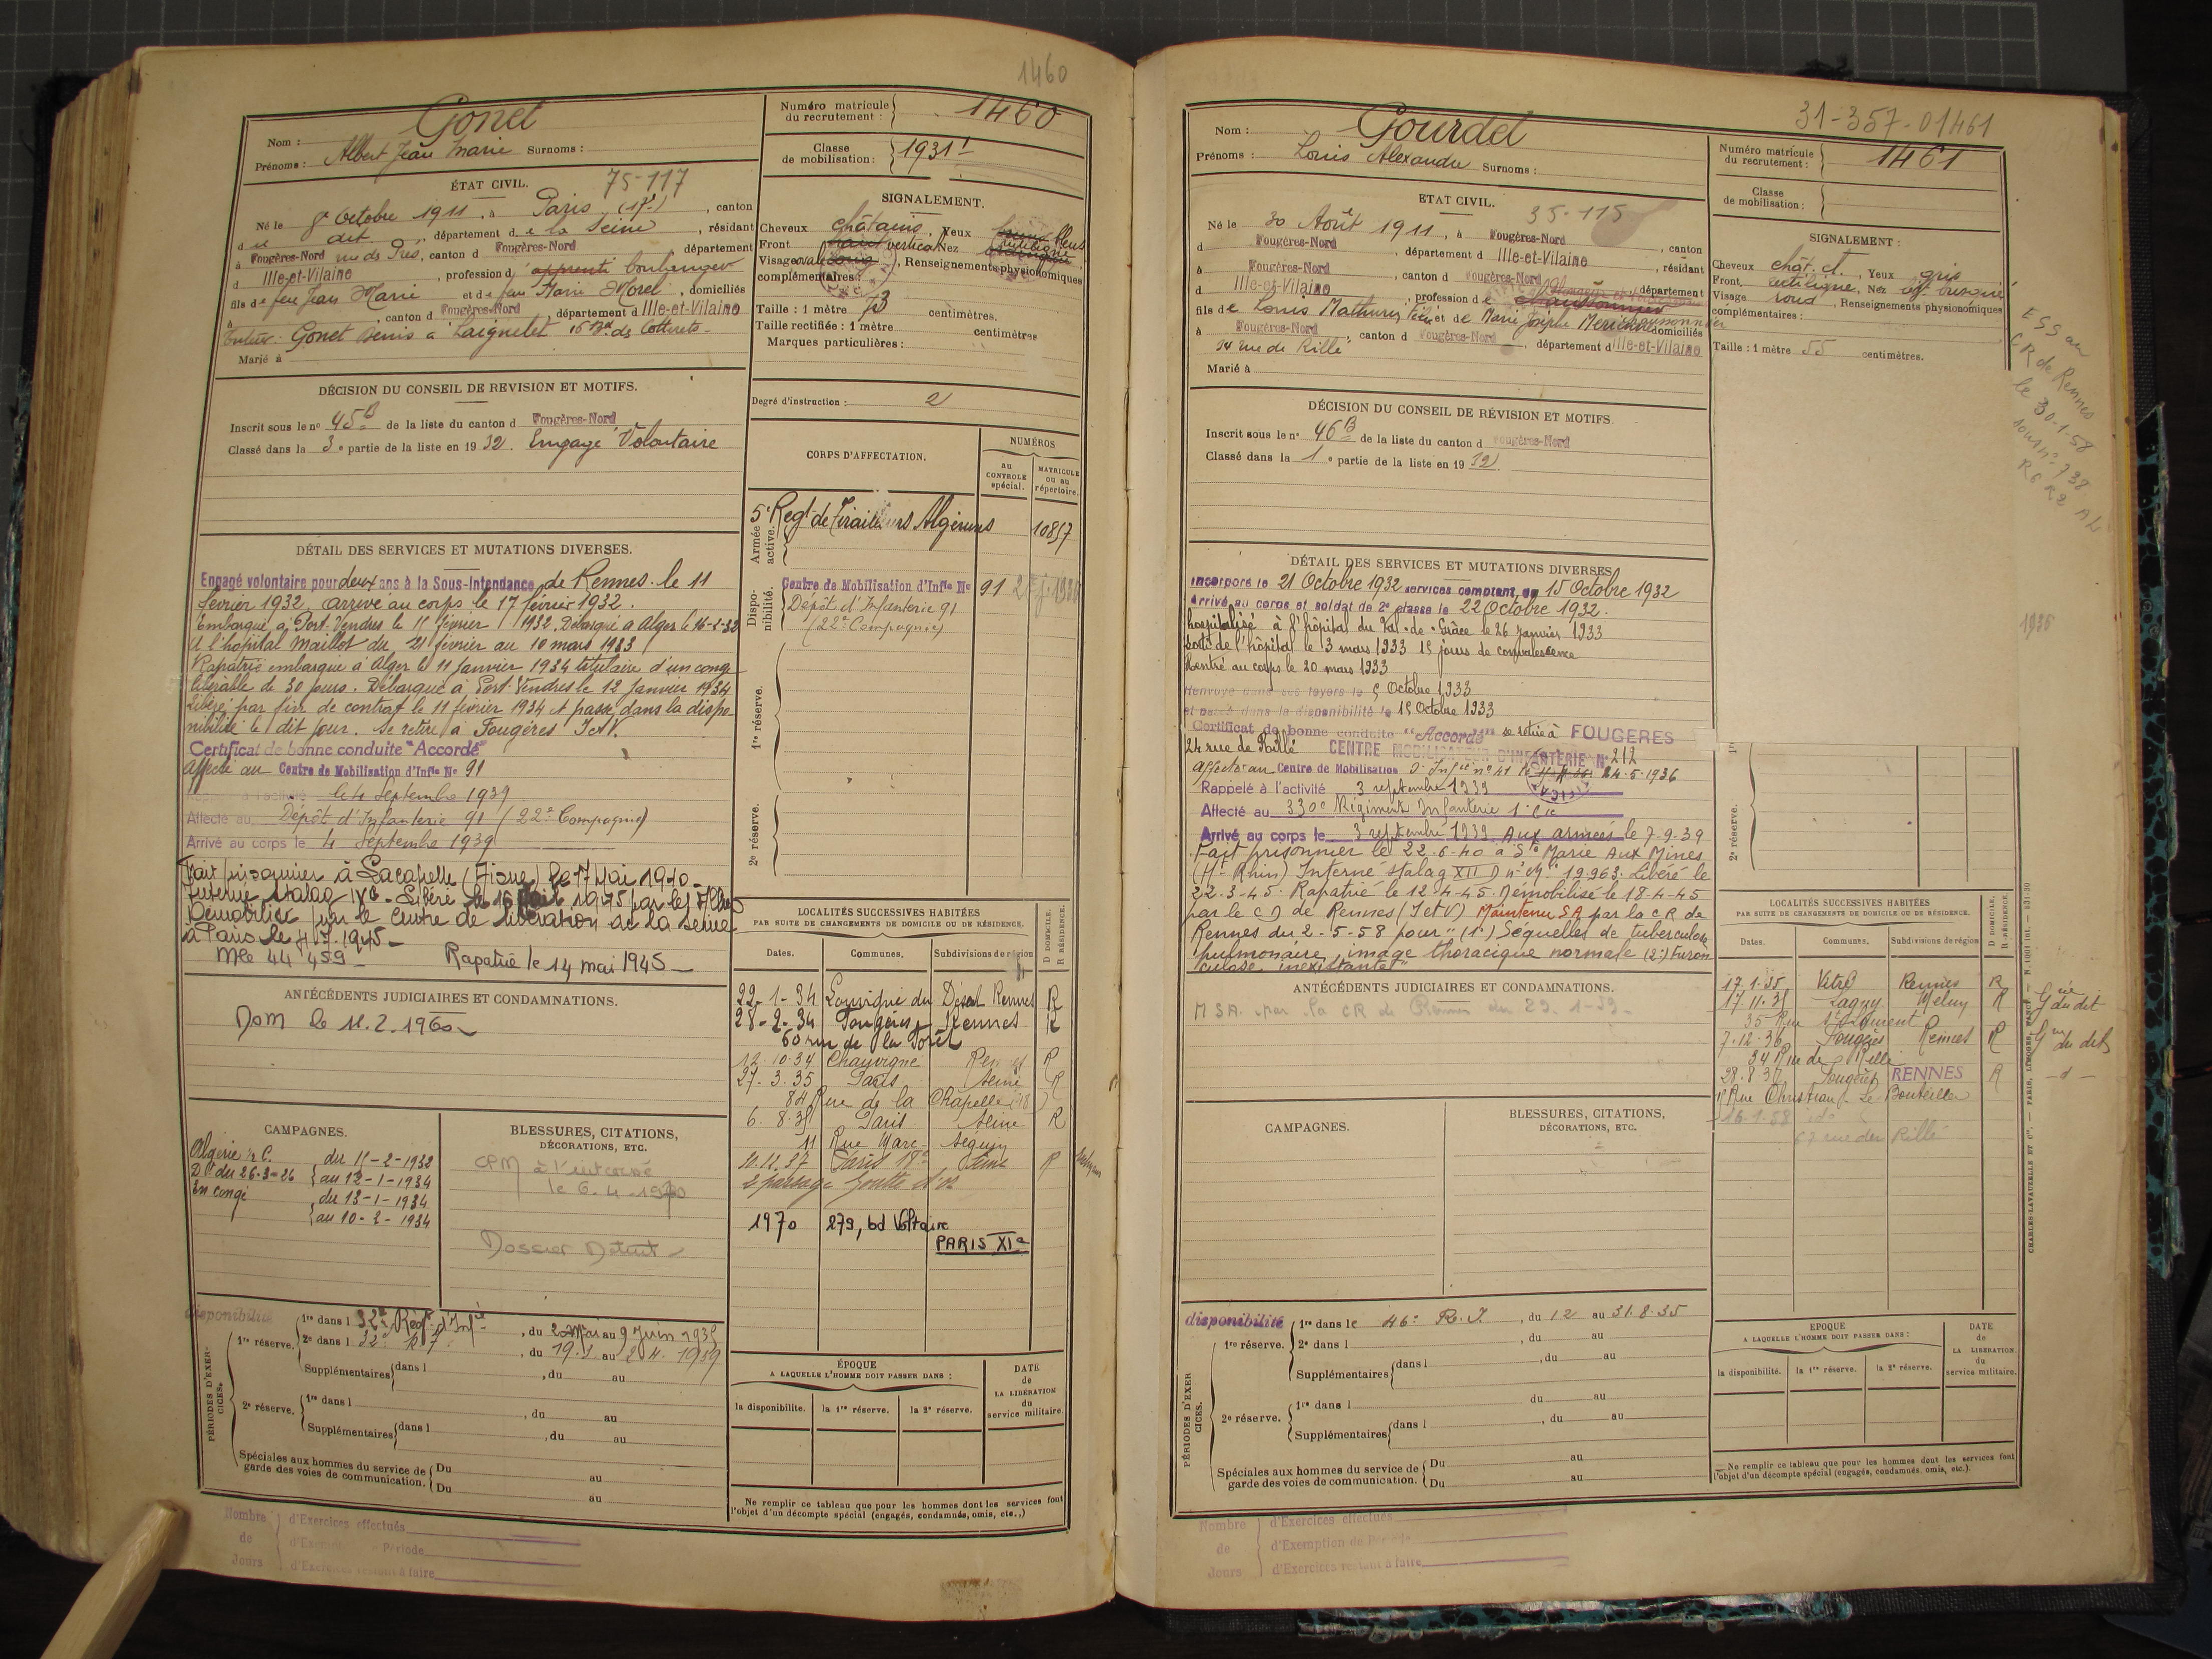 1460
Nom : Gonet
Prénoms : Albert Jean Marie Surnoms :
Numéro matricule du recrutement : 1460
Classe de mobilisation : 1931
ÉTAT CIVIL.
75-117
Né le 8 Octobre 1911, à Paris (17e), canton
du dit, département de la Seine, résidant
à Fougères-Nord rue des Prés, canton d Fougères-Nord département
d Ille-et-Vilaine, profession d'apprenti boulanger
fils de feu Jean Marie et de feu Marie Morel, domiciliés
à , canton d Fougères-Nord, département d Ille-et-Vilaine
tuteur: Gonet Denis à Laignelet 16 Bd des Cotterets
Marié à
SIGNALEMENT.
Cheveux châtains, Yeux bleus
Front haut vertical Nez rectiligne
Visage ovale long, Renseignements physionomiques
complémentaires :
Taille : 1 mètre 73 centimètres.
Taille rectifiée : 1 mètre centimètres
Marques particulières :
Degré d'instruction : 2
DÉCISION DU CONSEIL DE REVISION ET MOTIFS.
Inscrit sous le no 45B de la liste du canton d Fougères-Nord
Classé dans la 3e partie de la liste en 1932. Engagé Volontaire
CORPS D'AFFECTATION.
NUMÉROS
au CONTROLE spécial.
MATRICULE ou au répertoire.
Armée active.
5e Regt de Tirailleurs Algériens 10857
Disponibilité.
Centre de Mobilisation d'Infie No 91
Dépôt d'Infanterie 91
(22e Compagnie)
1re réserve.
2e réserve.
DÉTAIL DES SERVICES ET MUTATIONS DIVERSES.
Engagé volontaire pour deux ans à la Sous-Intendance de Rennes. le 11
février 1932. arrivé au corps le 17 février 1932.
Embarqué à Port-Vendres le 15 février 1932. Débarqué à Alger le 16-2-32
A l'hôpital Maillot du 21 février au 10 mars 1933
Rapatrié embarqué à Alger le 11 Janvier 1934 titulaire d'un congé
libérable de 30 jours. Débarqué à Port Vendres le 12 Janvier 1934
Libéré par fin de contrat le 11 février 1934 et passé dans la dispo-
nibilité le dit jour. Se retire à Fougères I et V.
Certificat de bonne conduite "Accordé"
Affecté au Centre de Mobilisation d'Infie No 91
Rappelé à l'activité le 4 Septembre 1939
Affecté au Dépôt d'Infanterie 91 (22e Compagnie)
Arrivé au corps le 4 Septembre 1939
Fait prisonnier à Lacapelle (Aisne) le 17 Mai 1940-
Interné Stalag IVC - Libéré le 1945 par les Alliés
Démobilisé par le Centre de libération de la Seine
à Paris le 1945 -
Mle 44 459 - Rapatrié le 14 mai 1945 -
ANTÉCÉDENTS JUDICIAIRES ET CONDAMNATIONS.
DOM le 11.2.1960
LOCALITÉS SUCCESSIVES HABITÉES
PAR SUITE DE CHANGEMENTS DE DOMICILE OU DE RÉSIDENCE.
Dates. Communes. Subdivisions de région
D DOMICILE. R RÉSIDENCE.
22-1-34 Louvigné du Désert Rennes R
28-2-34 Fougères Rennes R
60 rue de la Forêt
12.10.34 Chauvigné Rennes R
27-3.35 Paris Seine R
84 Rue de la Chapelle (18)
6.8.35 Paris Seine R
11 Rue Marc-Séguin
30.11.37 Paris 18e Seine R
2 passage Goutte d'Or
1970 279, bd Voltaire
PARIS XIe
CAMPAGNES.
Algérie N.C. du 15-2-1932
Dt du 26-3-26 au 12-1-1934
En congé du 13-1-1934
au 10-2-1934
BLESSURES, CITATIONS,
DÉCORATIONS, ETC.
CPM à l'intéressé
le 6.4.1970
Dossier Détruit
PÉRIODES D'EXERCICES.
disponibilité
1re réserve. 1re dans l 32e Régt d'Infie, du 20 Mai au 9 Juin 1935
2e dans l 32e R.I., du 19.3 au 2.4.1939
Supplémentaires dans l , du au
2e réserve. 1re dans l , du au
Supplémentaires dans l , du au
Spéciales aux hommes du service de garde des voies de communication. Du au
Du au
ÉPOQUE
A LAQUELLE L'HOMME DOIT PASSER DANS :
la disponibilité. la 1re réserve. la 2e réserve.
DATE de LA LIBÉRATION du service militaire.
Ne remplir ce tableau que pour les hommes dont les services font
l'objet d'un décompte spécial (engagés, condamnés, omis, etc.,)
Nombre de Jours
d'Exercices effectués
d'Exemption de Période
d'Exercices restant à faire
31-357-01461
Nom : Gourdel
Prénoms : Louis Alexandre Surnoms :
Numéro matricule du recrutement : 1461
Classe de mobilisation :
ETAT CIVIL.
35-115
Né le 30 Août 1911, à Fougères-Nord, canton
d Fougères-Nord, département d Ille-et-Vilaine, résidant
à Fougères-Nord, canton d Fougères-Nord département
d Ille-et-Vilaine, profession de chaussonnier
fils de Louis Mathurin et de Marie Josèphe domiciliés
à Fougères-Nord, canton d Fougères-Nord, département d Ille-et-Vilaine
34 rue de Rillé
Marié à
SIGNALEMENT :
Cheveux chât. cl., Yeux gris
Front rectiligne, Nez busqué
Visage rond, Renseignements physionomiques
complémentaires :
Taille : 1 mètre 55 centimètres.
ESS au
CR de Rennes
le 30-1-58
DÉCISION DU CONSEIL DE RÉVISION ET MOTIFS.
Inscrit sous le no 46B de la liste du canton d Fougères-Nord
Classé dans la 1e partie de la liste en 1932.
DÉTAIL DES SERVICES ET MUTATIONS DIVERSES
Incorporé le 21 Octobre 1932 services comptent du 15 Octobre 1932
Arrivé au corps et soldat de 2e classe le 22 Octobre 1932.
hospitalisé à l'hôpital du Val-de-Grâce le 26 Janvier 1933
sorti de l'hôpital le 3 mars 1933 15 jours de convalescence
Rentré au corps le 20 mars 1933
Renvoyé dans ses foyers le 5 Octobre 1933
et passé dans la disponibilité le 15 Octobre 1933
Certificat de bonne conduite "Accordé" se retire à FOUGERES
24 rue de Paillé CENTRE MOBILISATEUR D'INFANTERIE No 212
Affecté au Centre de Mobilisation d'Infie no 41 24.5.1936
Rappelé à l'activité 3 septembre 1939
Affecté au 330e Régiment Infanterie 1e Cie
Arrivé au corps le 3 septembre 1939 Aux armées le 7.9.39
Fait prisonnier le 22.6.40 à Ste Marie Aux Mines
(Ht-Rhin) Interné stalag XII D no Mle 19.963. Libéré le
22.3.45. Rapatrié le 12.4.45. Démobilisé le 18-4-45
par le C D de Rennes (I et V) Maintenu SA par la C R de
Rennes du 2-5-58 pour "(1°) Séquelles de tuberculose
pulmonaire, image thoracique normale (2°) Furon
culose inexistante"
ANTÉCÉDENTS JUDICIAIRES ET CONDAMNATIONS.
MSA. par la CR de Rennes du 29-1-59-
1935
1r
2e réserve.
LOCALITÉS SUCCESSIVES HABITÉES
PAR SUITE DE CHANGEMENTS DE DOMICILE OU DE RÉSIDENCE.
Dates. Communes. Subdivisions de région
D DOMICILE. R RÉSIDENCE.
17.1.35 Vitré Rennes R
17.11.35 Lagny Melun R Gie du dit
35 Rue St Laurent
7.12.36 Fougères Rennes R Gie du dit
34 Rue de Rillé
28.8.37 Fougères RENNES R -d-
Rue Christian-Le Bouteiller
16-1-58 do
67 rue de Rillé
CAMPAGNES.
BLESSURES, CITATIONS,
DÉCORATIONS, ETC.
PÉRIODES D'EXERCICES.
disponibilité 1re dans le 46e R.I., du 12 au 31.8.35
1re réserve. 2e dans l , du au
Supplémentaires dans l , du au
du au
2e réserve. 1re dans l , du au
Supplémentaires dans l
Spéciales aux hommes du service de garde des voies de communication. Du au
Du au
EPOQUE
A LAQUELLE L'HOMME DOIT PASSER DANS :
la disponibilité. la 1re réserve. la 2e réserve.
DATE de LA LIBERATION du service militaire.
Ne remplir ce tableau que pour les hommes dont les services font
l'objet d'un décompte spécial (engagés, condamnés, omis, etc.).
CHARLES-LAVAUZELLE ET Cie. — PARIS, LIMOGES, NANCY
Nombre de Jours
d'Exercices effectués
d'Exemption de Période
d'Exercices restant à faire